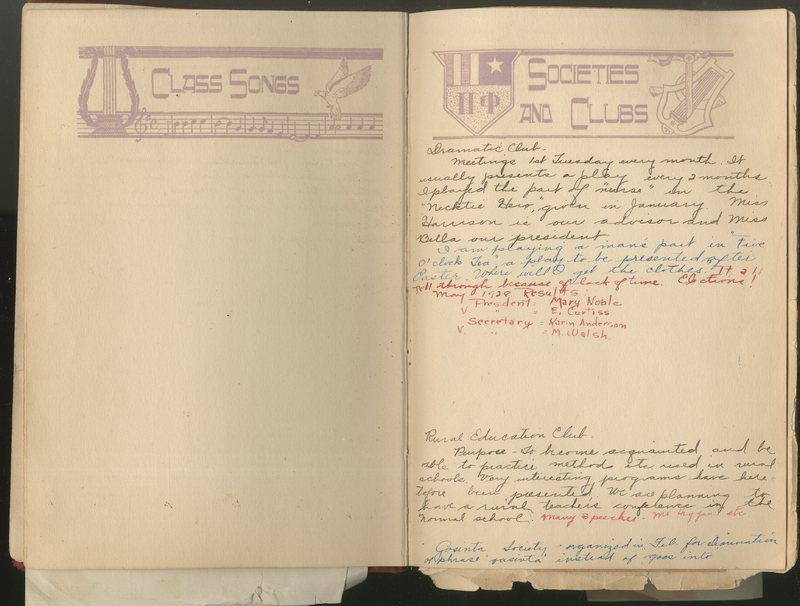 CLASS SONGS
SOCIETIES
AND CLUBS
ΠΦ
Dramatic Club.
Meetings 1st Tuesday every month. It
usually presents a play every 2 months
I played the part of "nurse" in the
"Necktie Hero," given in January. Miss
Harrison is our advisor and Miss
Bella our president
I am playing a man's part in "Five
O'clock Tea" a play to be presented after
Easter. Where will I get the clothes. It all
fell through because of lack of time. Elections!
May 1928 Results
President: Mary Noble
V " = E. Curtiss
Secretary = Karin Anderson
V " = M. Walsh
Rural Education Club.
Purpose - To become acquainted and be
able to practice methods etc used in rural
schools. Very interesting programs have here-
tofore been presented. We are planning to
have a rural teachers conference in the
normal school. Many speeches. Mr. etc
Gosinta Society - organized in Feb. for elimination
of phrase 'gosinta' instead of goes into